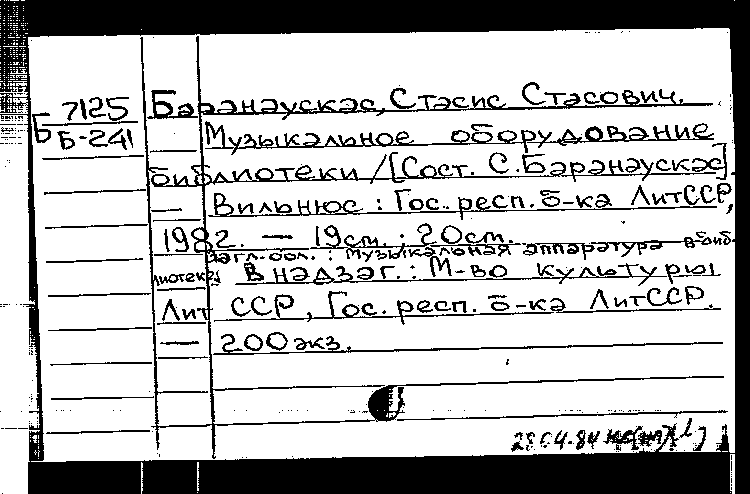 Б 7125
Б-241
Баранаускас, Стасис Стасович.
Музыкальное оборудование
библиотеки / [Сост. С. Баранаускас].
— Вильнюс : Гос. респ. б-ка ЛитССР,
1982. — 19 ст. ; 20 ст.
Загл. обл. : Музыкальная аппаратура в биб-
лиотеке. В надзаг. : М-во культуры
Лит ССР, Гос. респ. б-ка ЛитССР.
— 200 экз.
28.04.84